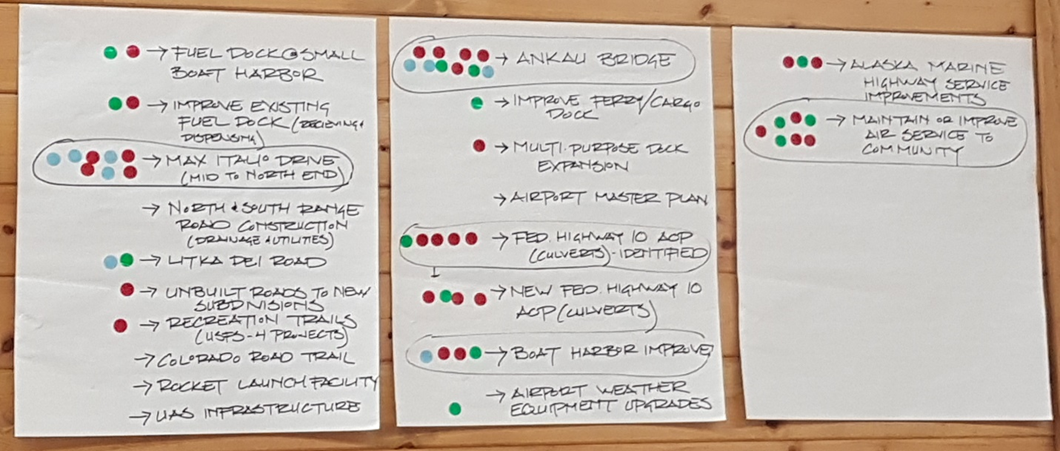 → FUEL DOCK @ SMALL
BOAT HARBOR
→ IMPROVE EXISTING
FUEL DOCK (RECIEVING &
DISPENSING)
→ MAX ITALIO DRIVE
(MID TO NORTH END)
→ NORTH & SOUTH RANGE
ROAD CONSTRUCTION
(DRAINAGE & UTILITIES)
→ LITKA DEI ROAD
→ UNBUILT ROADS TO NEW
SUBDIVISIONS
→ RECREATION TRAILS
(USFS - 4 PROJECTS)
→ COLORADO ROAD TRAIL
→ ROCKET LAUNCH FACILITY
→ UAS INFRASTRUCTURE
→ ANKAU BRIDGE
→ IMPROVE FERRY/CARGO
DOCK
→ MULTI-PURPOSE DOCK
EXPANSION
→ AIRPORT MASTER PLAN
→ FED. HIGHWAY 10 AOP
(CULVERTS) - IDENTIFIED
→ NEW FED. HIGHWAY 10
AOP (CULVERTS)
→ BOAT HARBOR IMPROVE
→ AIRPORT WEATHER
EQUIPMENT UPGRADES
→ ALASKA MARINE
HIGHWAY SERVICE
IMPROVEMENTS
→ MAINTAIN OR IMPROVE
AIR SERVICE TO
COMMUNITY